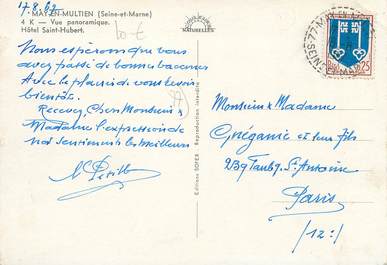 MAY-EN-MULTIEN (Seine-et-Marne)
4 K — Vue panoramique.
Hôtel Saint-Hubert.
NATURELLES
Nous espérons que vous
avez passé de bonnes vacances
Avec le plaisir de vous revoir
bientôt.
Recevez, Chers Monsieur &
Madame l'expression de
nos sentiments les meilleurs
Editions SOFER
Reproduction interdite
25
Monsieur & Madame
et leur Fils
239 Faubg. St. Antoine
Paris
(12e)